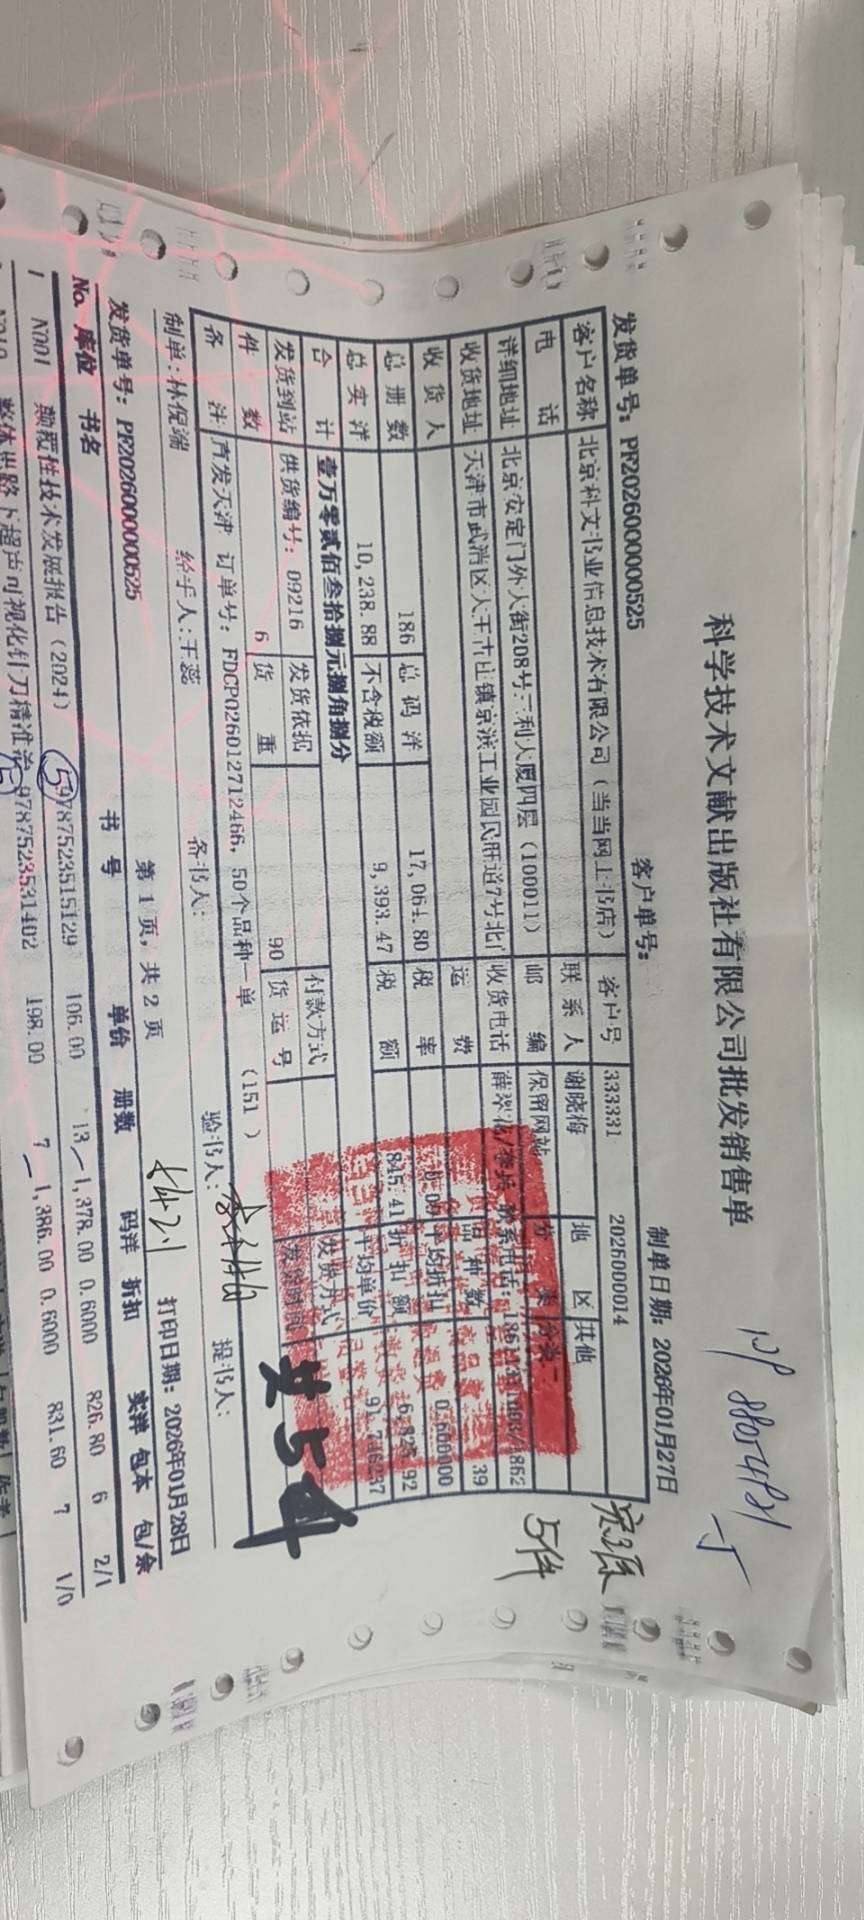 科学技术文献出版社有限公司批发销售单
发货单号: PF2026000000525 客户单号: 制单日期: 2026年01月27日
客户名称 北京科文书业信息技术有限公司（当当网上书店） 客户号 333331 2026000014
电话 联系人 谢晓梅 地区 其他
详细地址 北京安定门外大街208号三利大厦四层（100011） 邮编 保留网站 分类
收货地址 天津市武清区大王古庄镇京滨工业园民旺道7号北门 收货电话
收货人 运费 品种数 39
总册数 186 总码洋 17,064.80 税率 0.00 平均折扣 0.600000
总实洋 10,238.88 不含税额 9,393.47 税额 845.41 折扣额 6,825.92
合计 壹万零贰佰叁拾捌元捌角捌分 平均单价 91.746237
发货到站 供货编号: 09216 发货依据 付款方式 发货方式
件数 6 货重 90 货运号 发货时间
备注 直发天津 订单号: FDCP026012712466, 50个品种一单 (151 )
制单: 林倪端 经手人: 王蕊 备书人: 验书人: 提书人:
发货单号: PF2026000000525 第 1 页, 共 2 页 打印日期: 2026年01月28日
No. 库位 书名 书号 单价 册数 码洋 折扣 实洋 包本 包/余
1 N001 颠覆性技术发展报告（2024） 9787523515129 106.00 13 1,378.00 0.6000 826.80 6 2/1
整体思路下超声可视化针刀精准治 9787523531402 198.00 7 1,386.00 0.6000 831.60 7 1/0
5件